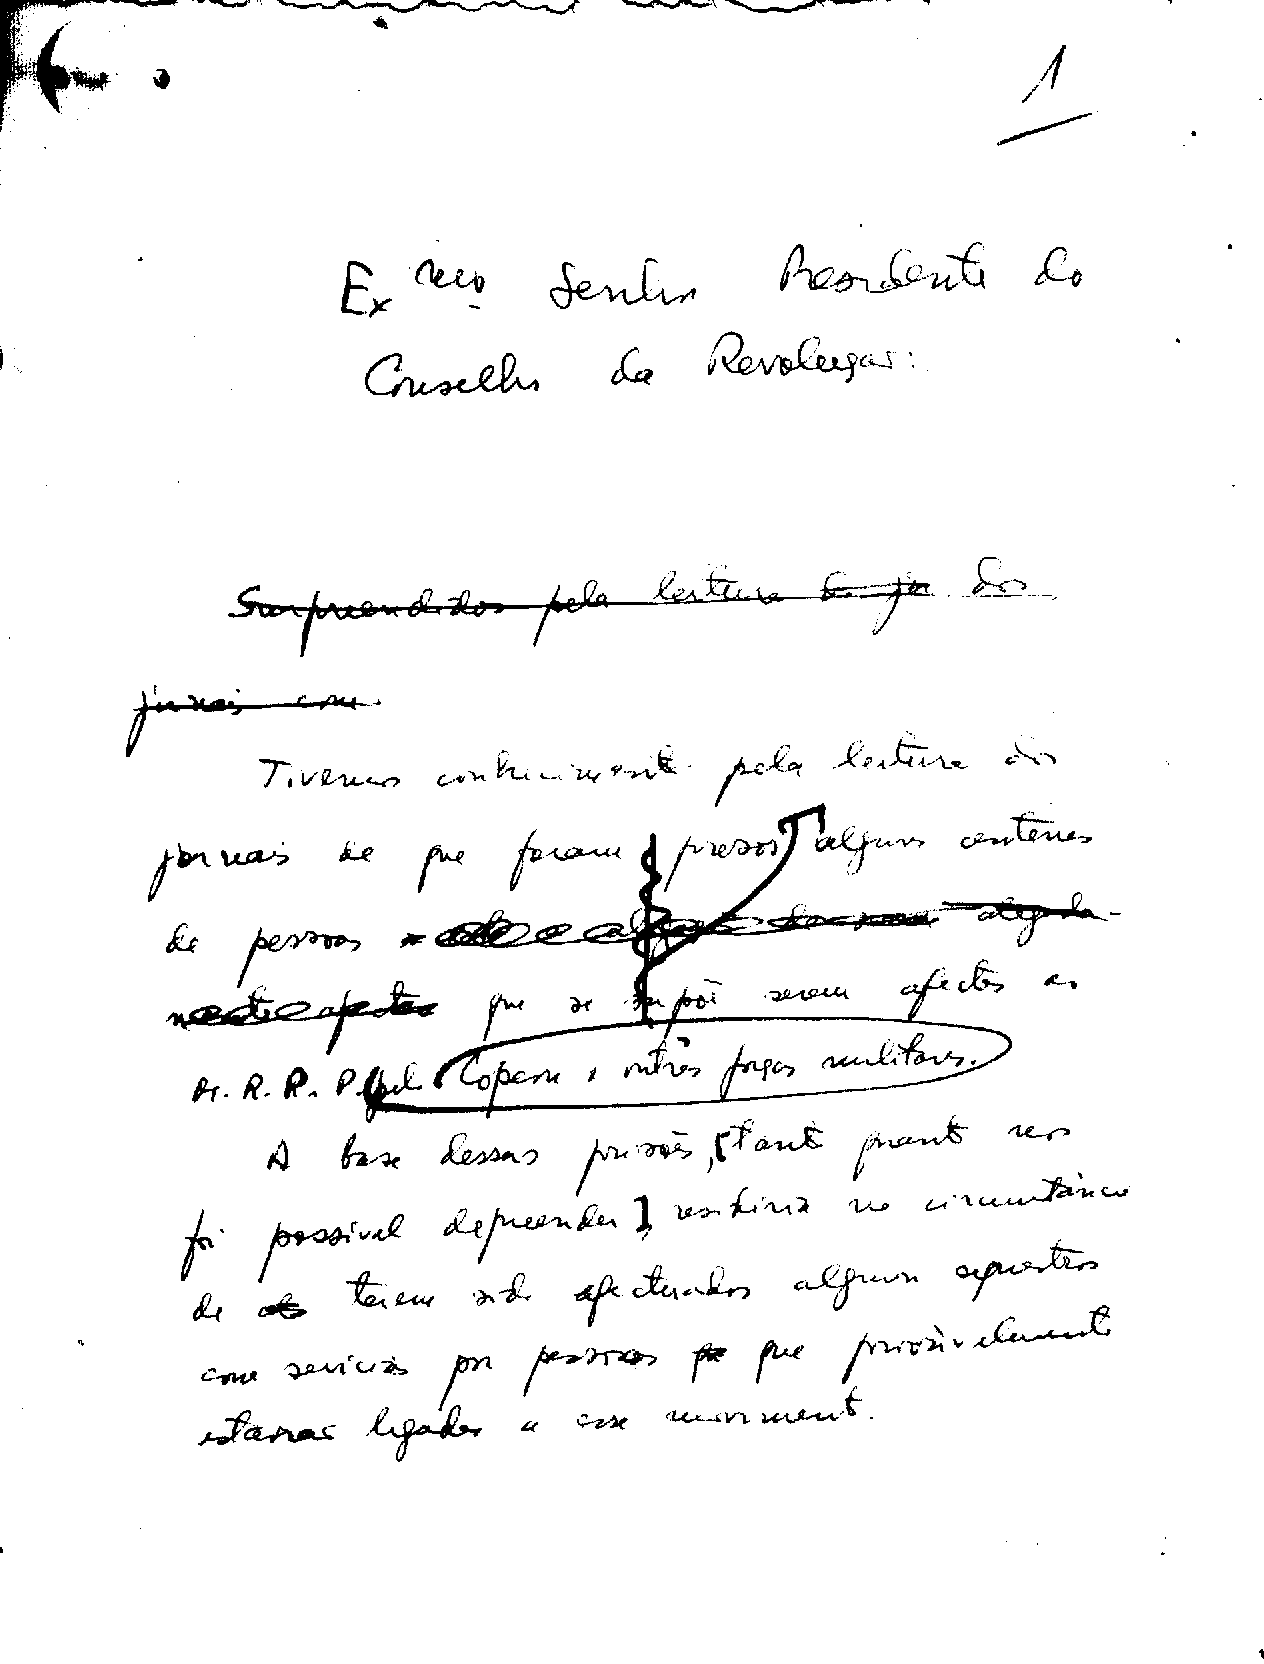 1
Exmo Senhor Presidente do
Conselho da Revolução:
Surpreendidos pela leitura de jo dos
jornais com
Tivemos conhecimento pela leitura dos
jornais de que foram presos algumas centenas
de pessoas alegada-
mente afectas que se supõe serem afectas ao
M. R. R. P. pelo Copcon e outras forças militares.
A base dessas prisões, [tanto quanto nos
foi possível depreender], residiria na circunstância
de terem sido efectuados alguns sequestros
com sevícias por pessoas que possivelmente
estavam ligadas a esse movimento.